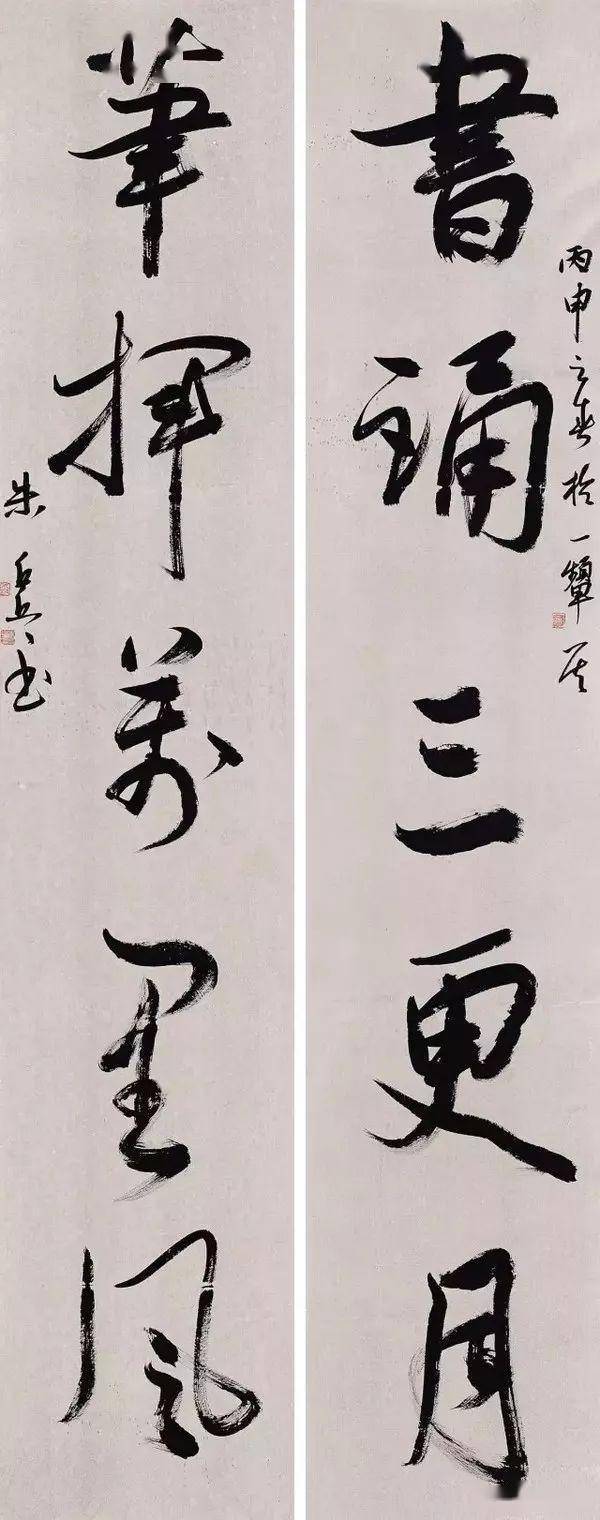 書誦三更月
丙申之春於一
筆揮萬里風
朱書